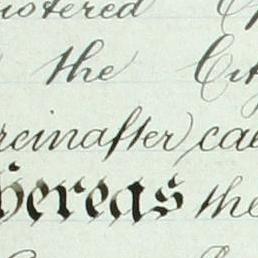 istered
the City
reinafter cal
hereas the